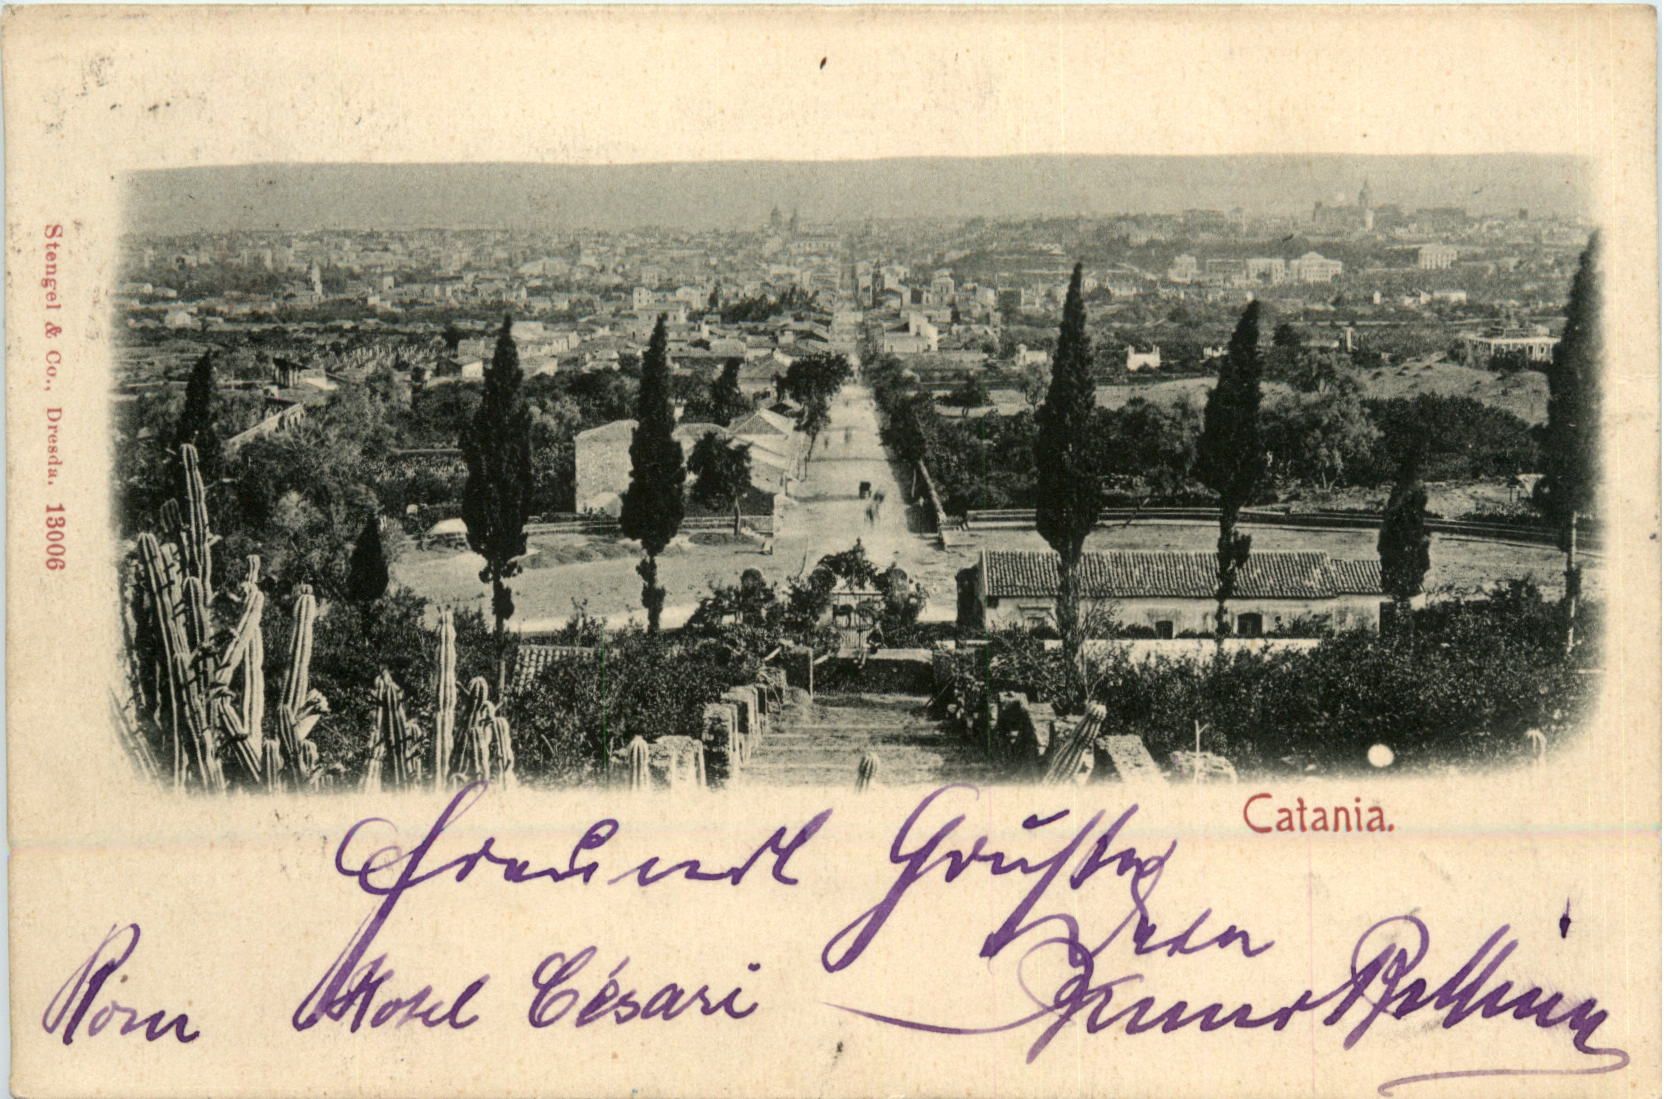 Stengel & Co., Dresda. 13006
Catania.
Freundl Grüße
Rom Hotel Césari